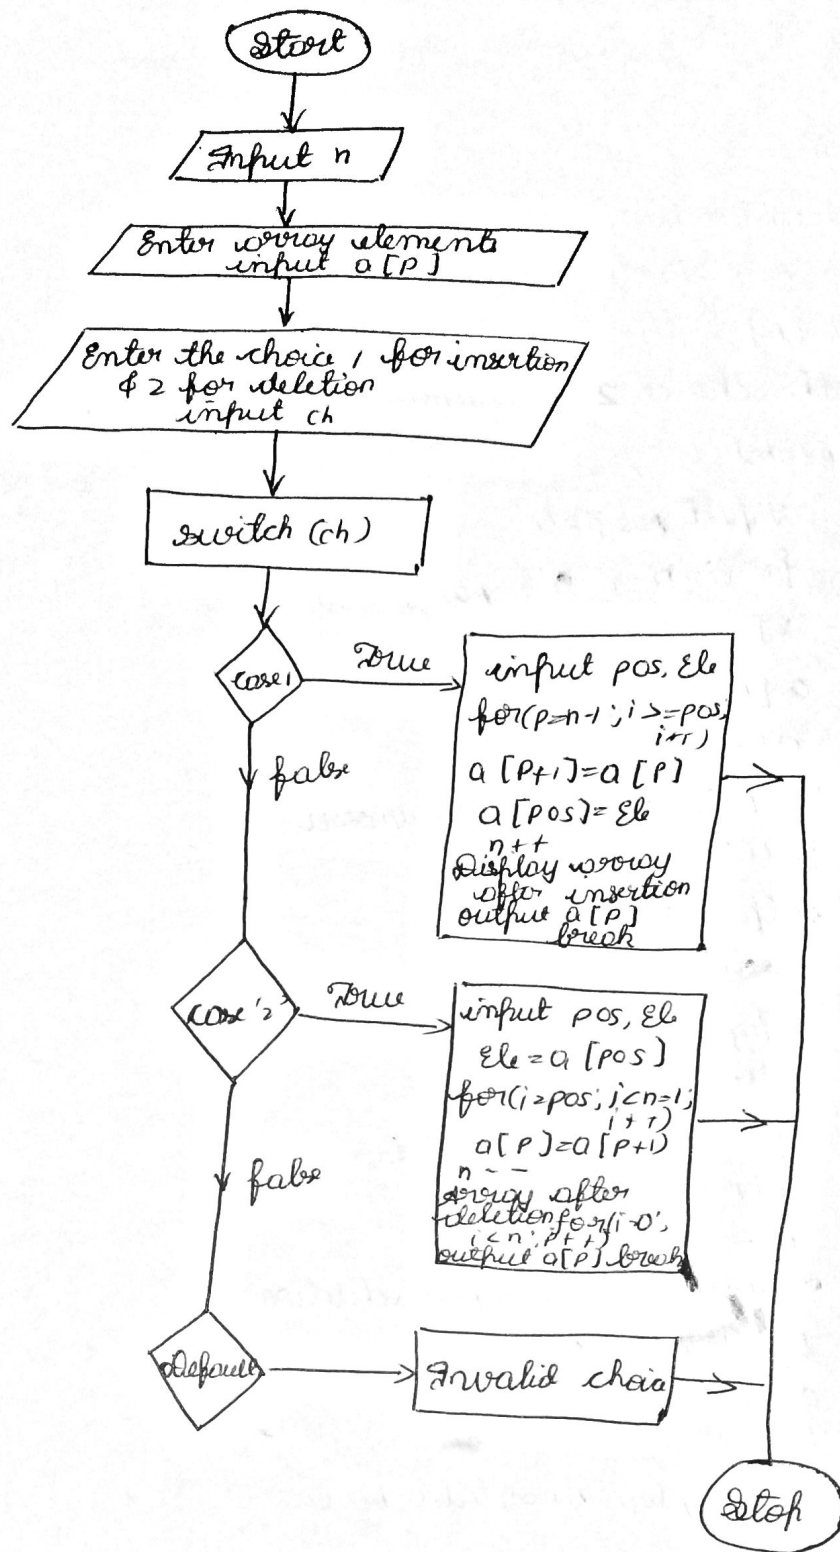 Start
Input n
Enter array elements
input a[P]
Enter the choice 1 for insertion
& 2 for deletion
input ch
switch (ch)
case 1
True
input pos, Ele
for(P=n-1; i>=pos;
i++)
a[P+1]=a[P]
a[pos]=Ele
n++
Display array
after insertion
output a[P]
break
false
case '2'
True
input pos, Ele
Ele=a[pos]
for(i=pos; i<n=1;
i++)
a[P]=a[P+1)
n--
Array after
deletion for(i=0;
i<n; P++)
output a[P] break
false
Default
Invalid choic
Stop